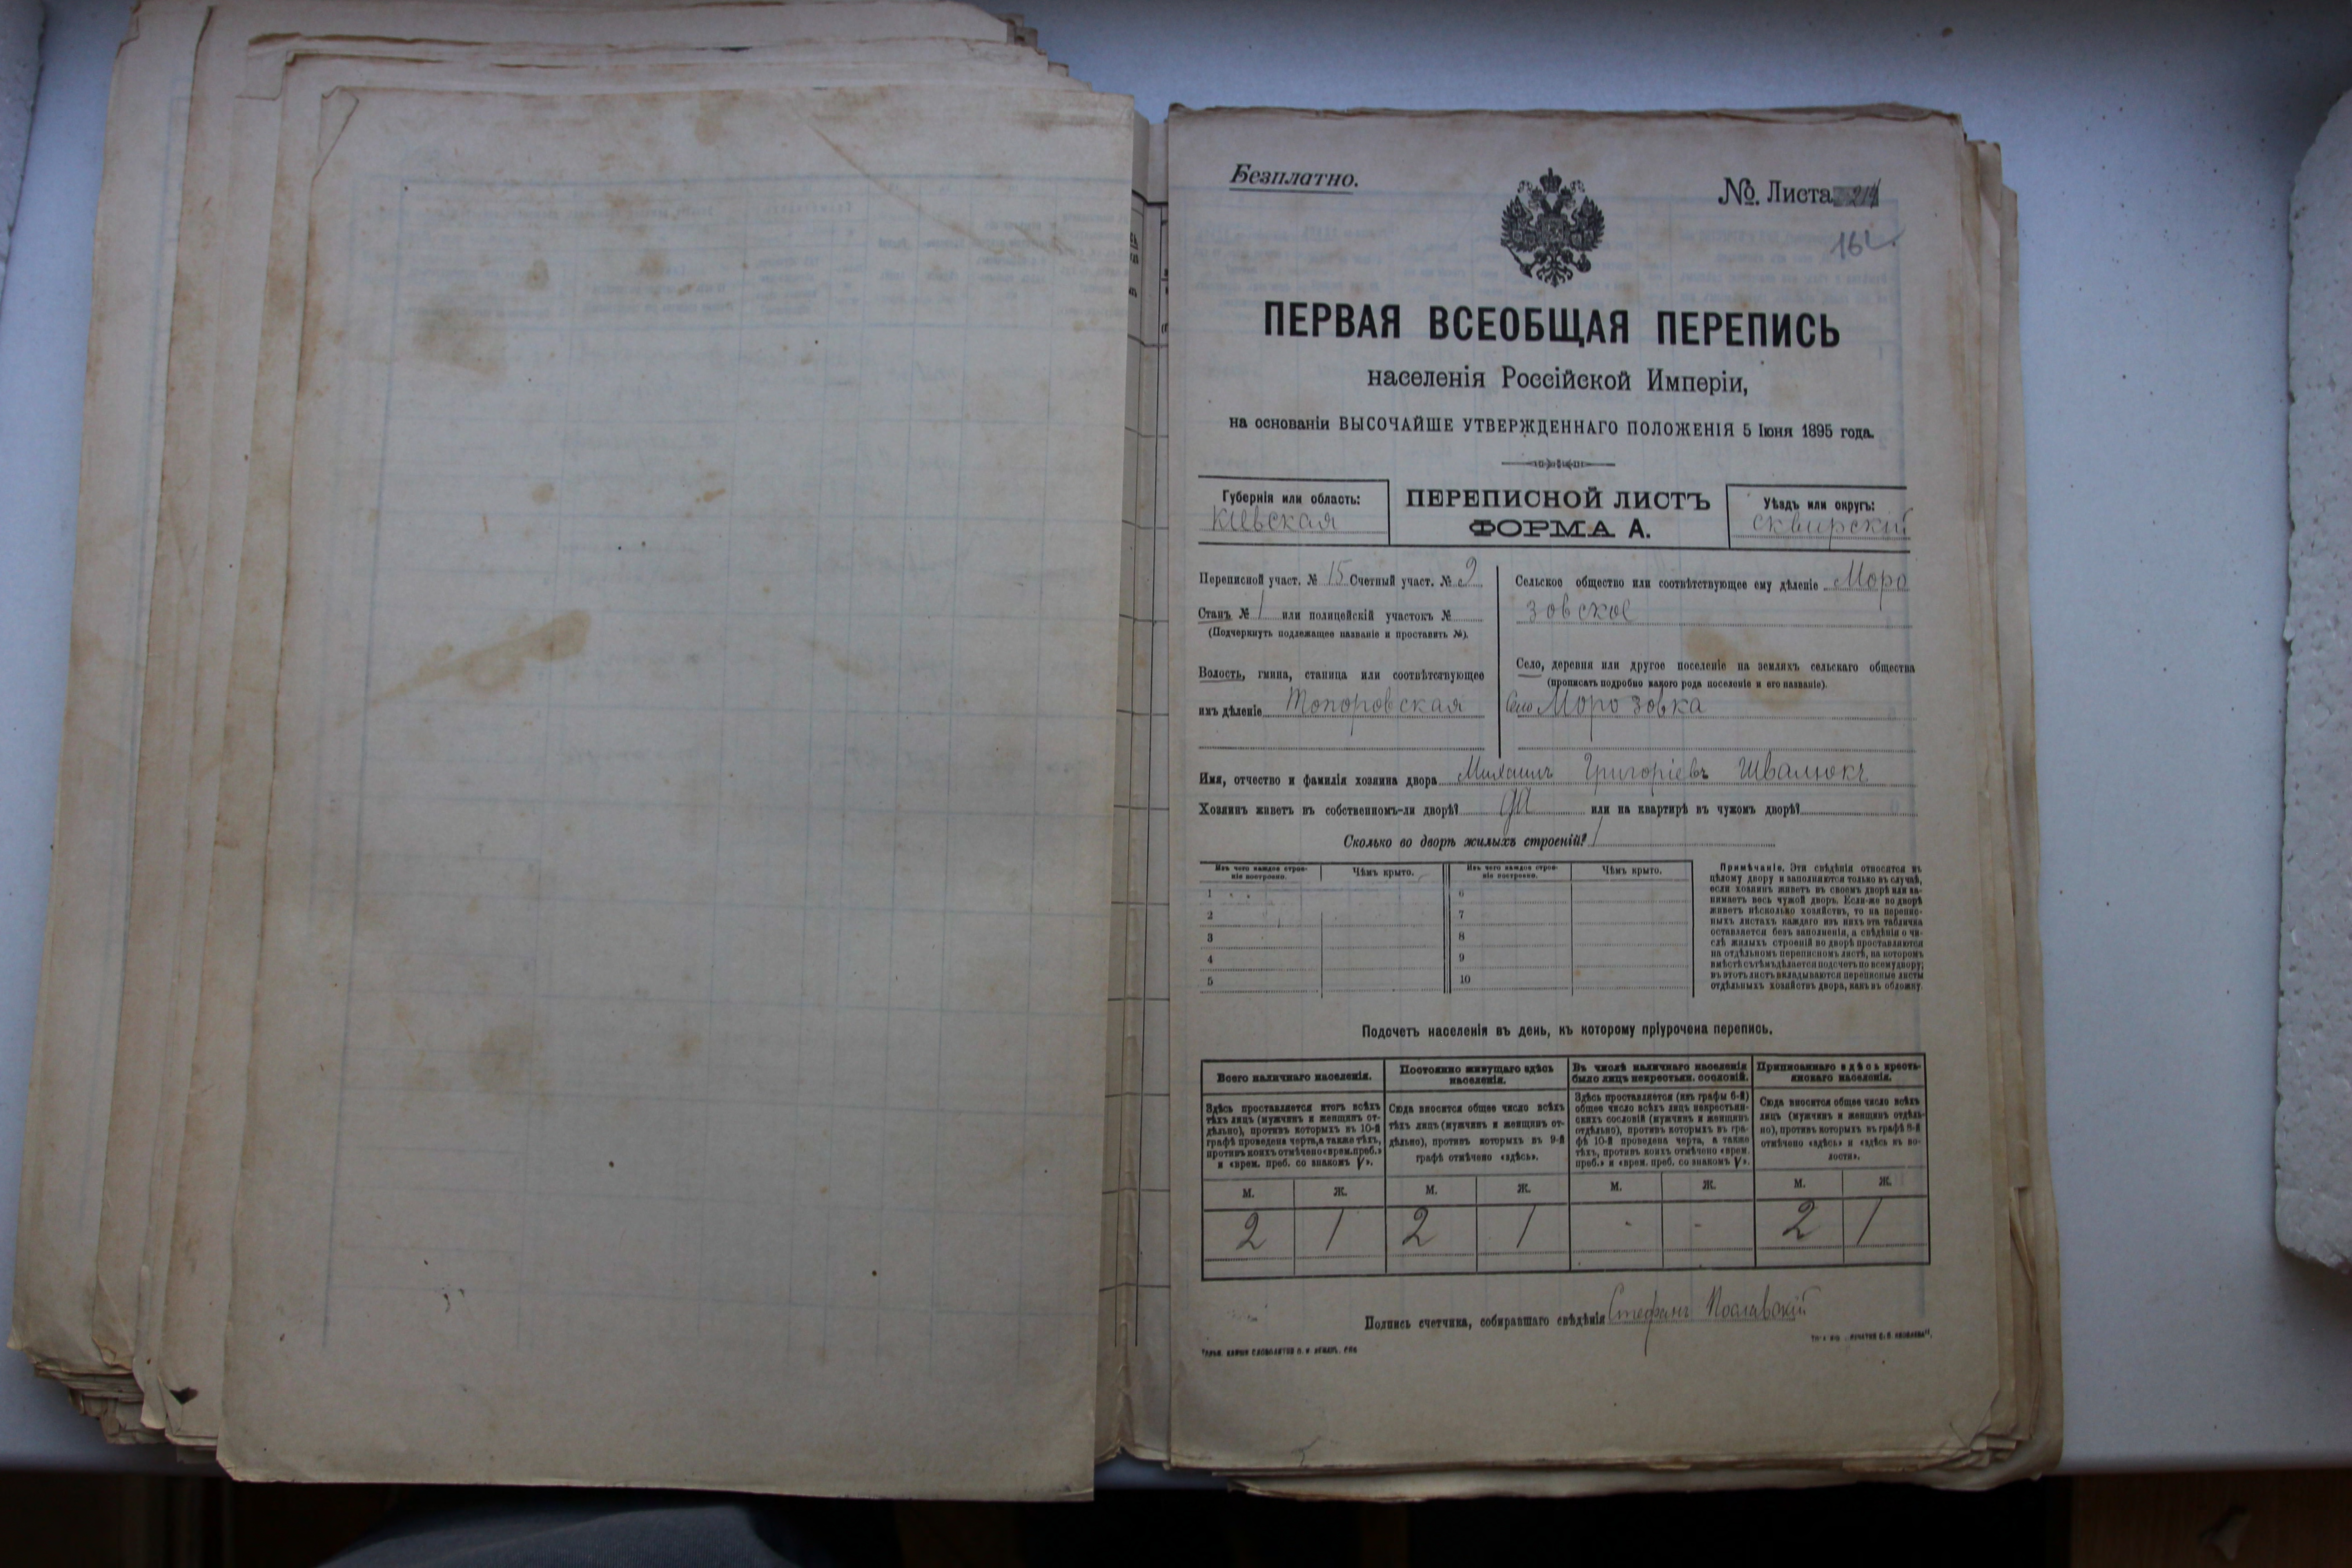 Безплатно.
№. Листа
162.
ПЕРВАЯ ВСЕОБЩАЯ ПЕРЕПИСЬ
населенія Россійской Имперіи,
на основаніи ВЫСОЧАЙШЕ УТВЕРЖДЕННАГО ПОЛОЖЕНІЯ 5 Іюня 1895 года.
Губернія или область:
Кіевская
ПЕРЕПИСНОЙ ЛИСТЪ
ФОРМА А.
Уѣздъ или округъ:
сквирскій
Переписной участ. № 15 Счетный участ. № 9
Станъ № 1 или полицейскій участокъ №
(Подчеркнуть подлежащее названіе и проставить №).
Волость, гмина, станица или соотвѣтствующее
ихъ дѣленіе Топоровская
Сельское общество или соотвѣтствующее ему дѣленіе Моро
зовское
Село, деревня или другое поселеніе на земляхъ сельскаго общества
(прописать подробно какого рода поселеніе и его названіе).
Село Морозовка
Имя, отчество и фамилія хозяина двора Михаилъ Григоріевъ Швалюкъ
Хозяинъ живетъ въ собственномъ-ли дворѣ? да или на квартирѣ въ чужомъ дворѣ?
Сколько во дворѣ жилыхъ строеній? 1
Изъ чего каждое строе-
ніе построено.
Чѣмъ крыто.
Изъ чего каждое строе-
ніе построено.
Чѣмъ крыто.
1 6
2 7
3 8
4 9
5 10
Примѣчаніе. Эти свѣдѣнія относятся къ
цѣлому двору и заполняются только въ случаѣ,
если хозяинъ живетъ въ своемъ дворѣ или за-
нимаетъ весь чужой дворъ. Если-же во дворѣ
живетъ нѣсколько хозяйствъ, то на перепис-
ныхъ листахъ каждаго изъ нихъ эта табличка
оставляется безъ заполненія, а свѣдѣнія о чи-
слѣ жилыхъ строеній во дворѣ проставляются
на отдѣльномъ переписномъ листѣ, на которомъ
вмѣстѣ съ тѣмъ дѣлается подсчетъ по всему двору;
въ этотъ листъ вкладываются переписные листы
отдѣльныхъ хозяйствъ двора, какъ въ обложку.
Подсчетъ населенія въ день, къ которому пріурочена перепись.
Всего наличнаго населенія.
Здѣсь проставляется итогъ всѣхъ
тѣхъ лицъ (мужчинъ и женщинъ от-
дѣльно), противъ которыхъ въ 10-й
графѣ проведена черта, а также тѣхъ,
противъ коихъ отмѣчено «врем. преб.»
и «врем. преб. со знакомъ V».
Постоянно живущаго здѣсь
населенія.
Сюда вносится общее число всѣхъ
тѣхъ лицъ (мужчинъ и женщинъ от-
дѣльно), противъ которыхъ въ 9-й
графѣ отмѣчено «здѣсь».
Въ числѣ наличнаго населенія
было лицъ некрестьян. сословій.
Здѣсь проставляется (изъ графы 6-й)
общее число всѣхъ лицъ некрестьян-
скихъ сословій (мужчинъ и женщинъ
отдѣльно), противъ которыхъ въ гра-
фѣ 10-й проведена черта, а также
тѣхъ, противъ коихъ отмѣчено «врем.
преб.» и «врем. преб. со знакомъ V».
Приписаннаго здѣсь кресть-
янскаго населенія.
Сюда вносится общее число всѣхъ
лицъ (мужчинъ и женщинъ отдѣль-
но), противъ которыхъ въ графѣ 8-й
отмѣчено «здѣсь» и «здѣсь въ во-
лости».
М. Ж. М. Ж. М. Ж. М. Ж.
2 1 2 1 - - 2 1
Подпись счетчика, собиравшаго свѣдѣнія Стефанъ